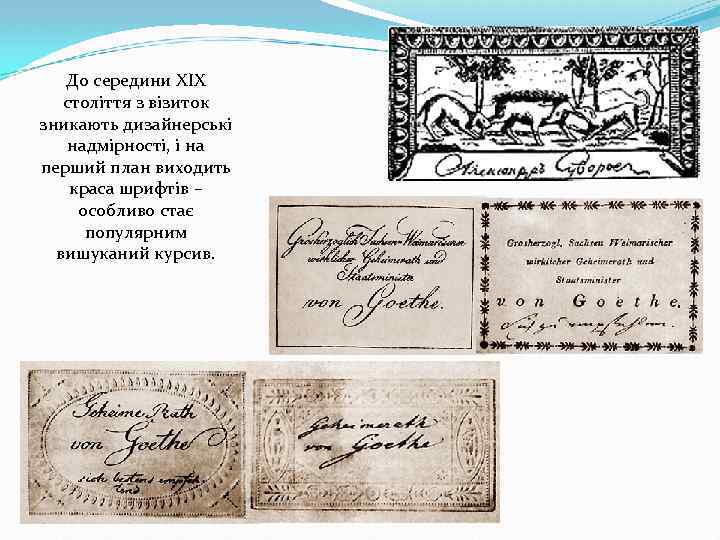 До середини XIX
століття з візиток
зникають дизайнерські
надмірності, і на
перший план виходить
краса шрифтів –
особливо стає
популярним
вишуканий курсив.
Александръ Суворов
Grosherzoglich Sachsen-Weimarischer
wirklicher Geheimerath und
Staatsminister
von Goethe.
Grosherzogl. Sachsen Weimarischer
wirklicher Geheimerath und
Staatsminister
von Goethe.
Geheime Rath
von Goethe
sich bestens empfeh-
lend
Geheimerath
von Goethe